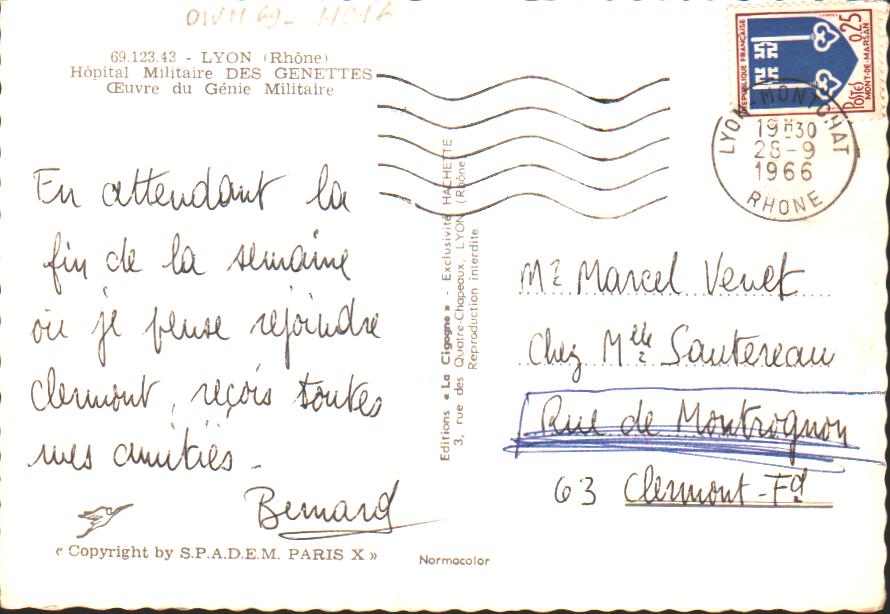 OWM 69-11016
69.123.43 - LYON (Rhône)
Hôpital Militaire DES GENETTES
Œuvre du Génie Militaire
En attendant la
fin de la semaine
où je pense rejoindre
Clermont, reçois toutes
mes amitiés.
Bernard
« Copyright by S.P.A.D.E.M. PARIS X »
Editions « La Cigogne » - Exclusivité HACHETTE
3, rue des Quatre-Chapeaux, LYON (Rhône
Reproduction interdite
Normacolor
REPUBLIQUE FRANÇAISE
0,25
POSTES
MONT-DE-MARSAN
LYON-MONTCHAT
19H30
28-9
1966
RHONE
Mr Marcel Venet
Chez Melle Sautereau
Rue de Montrognon
63 Clermont-Fd